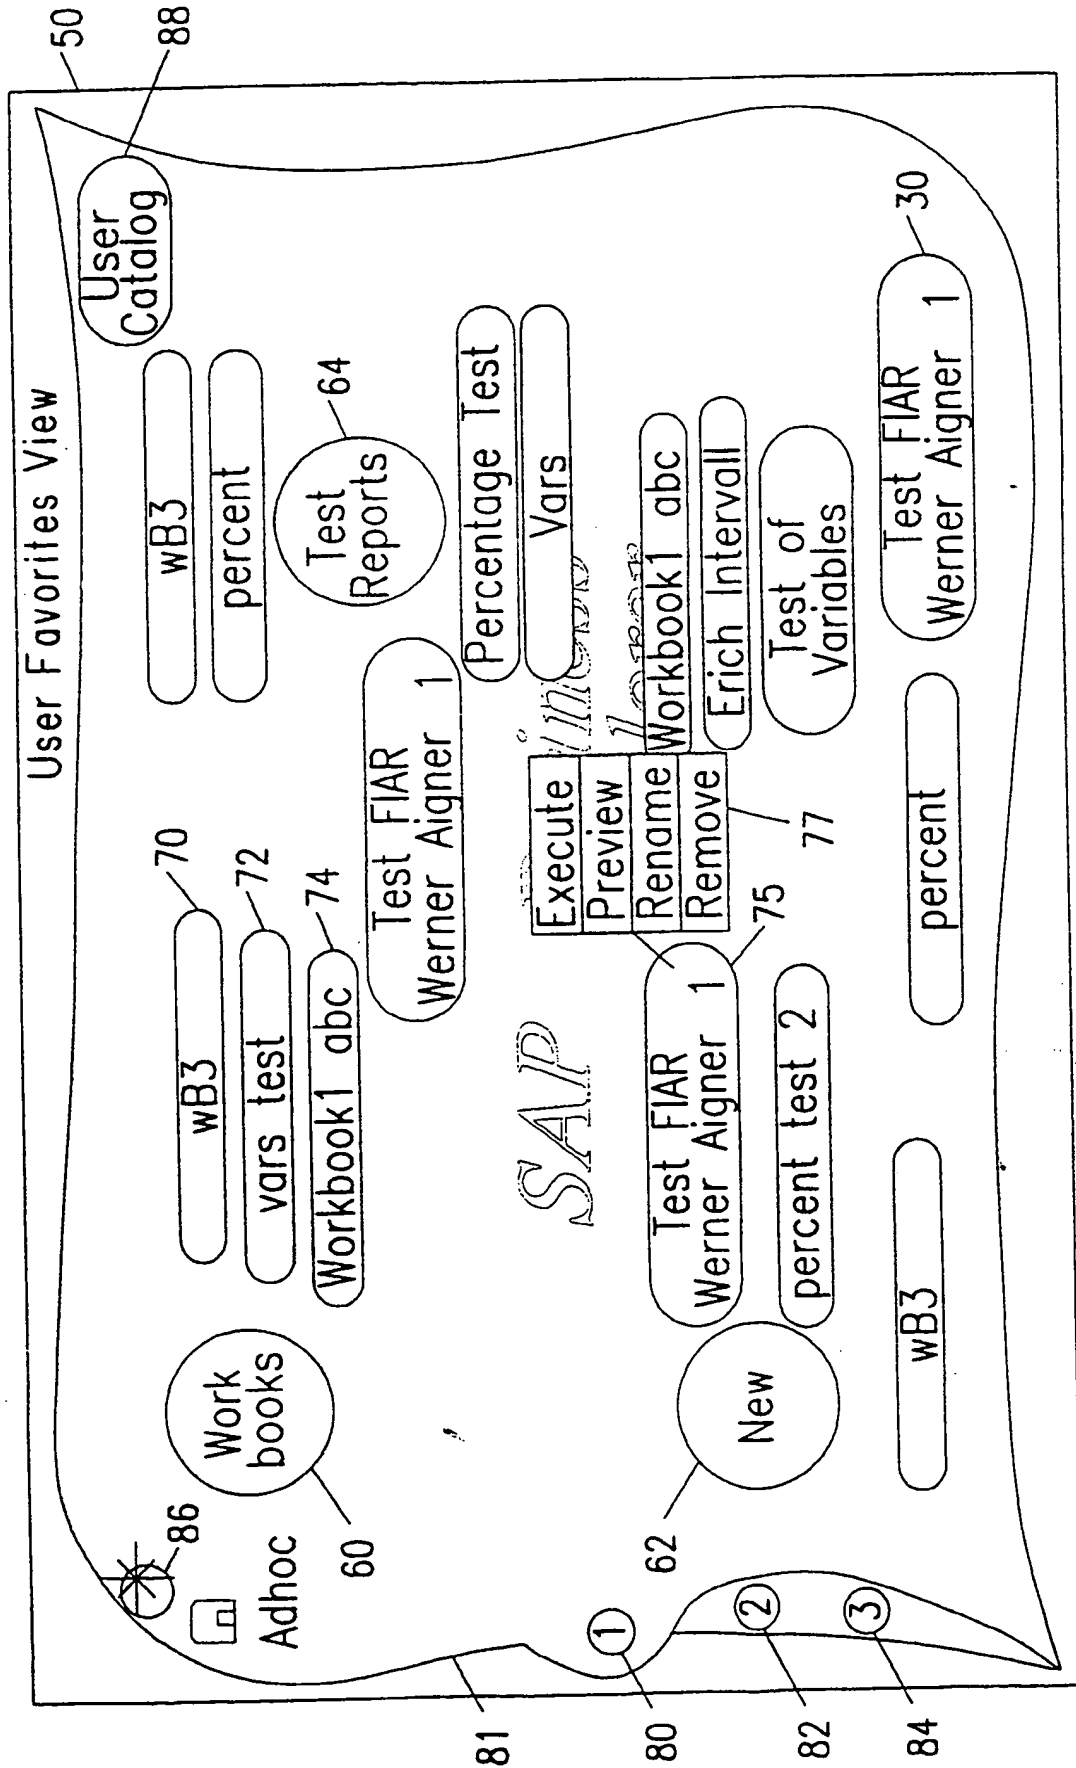 User Favorites View
50
88
User
Catalog
86
Adhoc
Work
books
60
wB3
70
vars test
72
Workbook1 abc
74
wB3
percent
Test
Reports
64
Test FIAR
Werner Aigner 1
Percentage Test
Vars
SAP
Execute
Preview
Rename
Remove
77
Workbook1 abc
Erich Intervall
Test of
Variables
Test FIAR
Werner Aigner 1
75
percent test 2
New
62
1
2
3
81
80
82
84
wB3
percent
Test FIAR
Werner Aigner 1
30